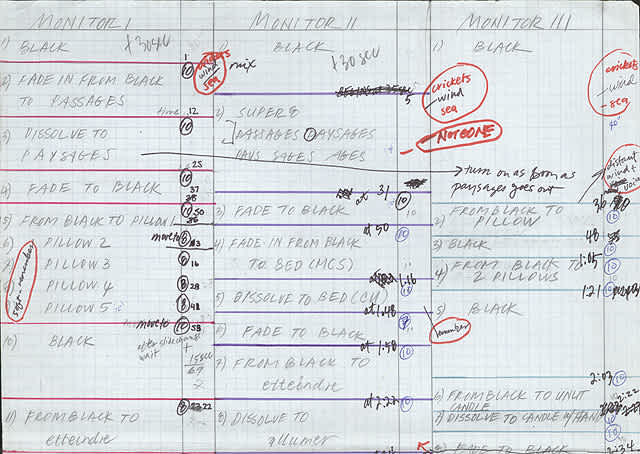 MONITOR I
+30 sec
1) BLACK
1
10
crickets
wind
sea
mix
2) FADE IN FROM BLACK
TO PASSAGES
time 12
10
3) DISSOLVE TO
PAYSAGES
25
10
4) FADE TO BLACK
37
10 50
5) FROM BLACK TO PILLOW 1
6) PILLOW 2
move to 8
7) PILLOW 3
8 16
PILLOW 4
8 28
PILLOW 5
8 48
move to 10 58
10) BLACK
after slide change
wait
15 sec
8 22
11) FROM BLACK TO
eteindre
MONITOR II
BLACK
+30 sec
5
2) SUPER 8
PASSAGES PAYSAGES
PAYS SAGES AGES
at 31
10
3) FADE TO BLACK
at 50
10
4) FADE IN FROM BLACK
TO BED (MCS)
1:16
5) DISSOLVE TO BED (CU)
at 1:48
6) FADE TO BLACK
at 1:58
10
7) FROM BLACK TO
eteindre
at 2:22
10
8) DISSOLVE TO
allumer
MONITOR III
1) BLACK
crickets
wind
sea
crickets
- wind
- sea
40"
- NOT ONE
distant
wind +
voice
→ turn on as soon as
paysages goes out
2) FROM BLACK TO
PILLOW
10
48
3) BLACK
10
4) FROM BLACK TO
2 PILLOWS
1:05
10
1:21
10
5) BLACK
remember
2:03
10
6) FROM BLACK TO UNLIT
CANDLE
2:22
7) DISSOLVE TO CANDLE W/ HAND
8) FADE TO BLACK
2:34